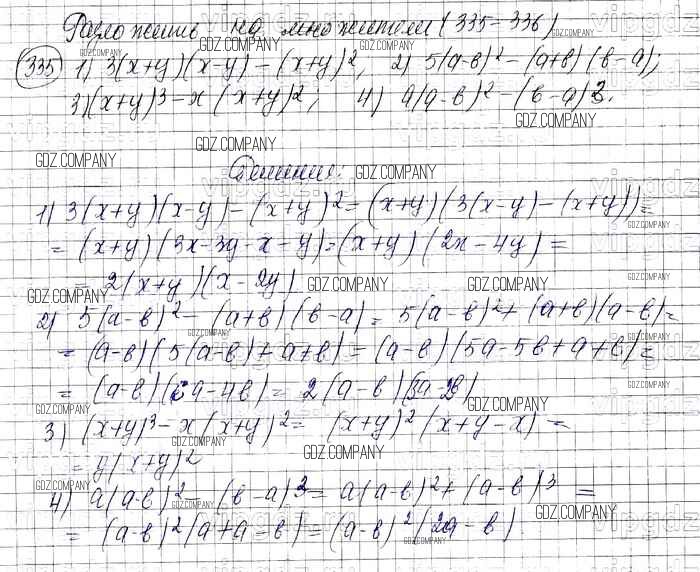 Разложение на множители (335-336)
335 1) 3(x+y)(x-y) - (x+y)², 2) 5(a-b)² - (a+b)(b-a);
3)(x+y)³ - x(x+y)²; 4) a(a-b)² - (b-a)³.
Решение:
1) 3(x+y)(x-y) - (x+y)² = (x+y)(3(x-y) - (x+y)) =
= (x+y)(3x-3y-x-y) = (x+y)(2x-4y) =
= 2(x+y)(x-2y)
2) 5(a-b)² - (a+b)(b-a) = 5(a-b)² + (a+b)(a-b) =
= (a-b)(5(a-b)+a+b) = (a-b)(5a-5b+a+b) =
= (a-b)(6a-4b) = 2(a-b)(3a-2b)
3) (x+y)³ - x(x+y)² = (x+y)²(x+y-x) =
= y(x+y)²
4) a(a-b)² - (b-a)³ = a(a-b)² + (a-b)³ =
= (a-b)²(a+a-b) = (a-b)²(2a-b)
GDZ.COMPANY
vipgdz